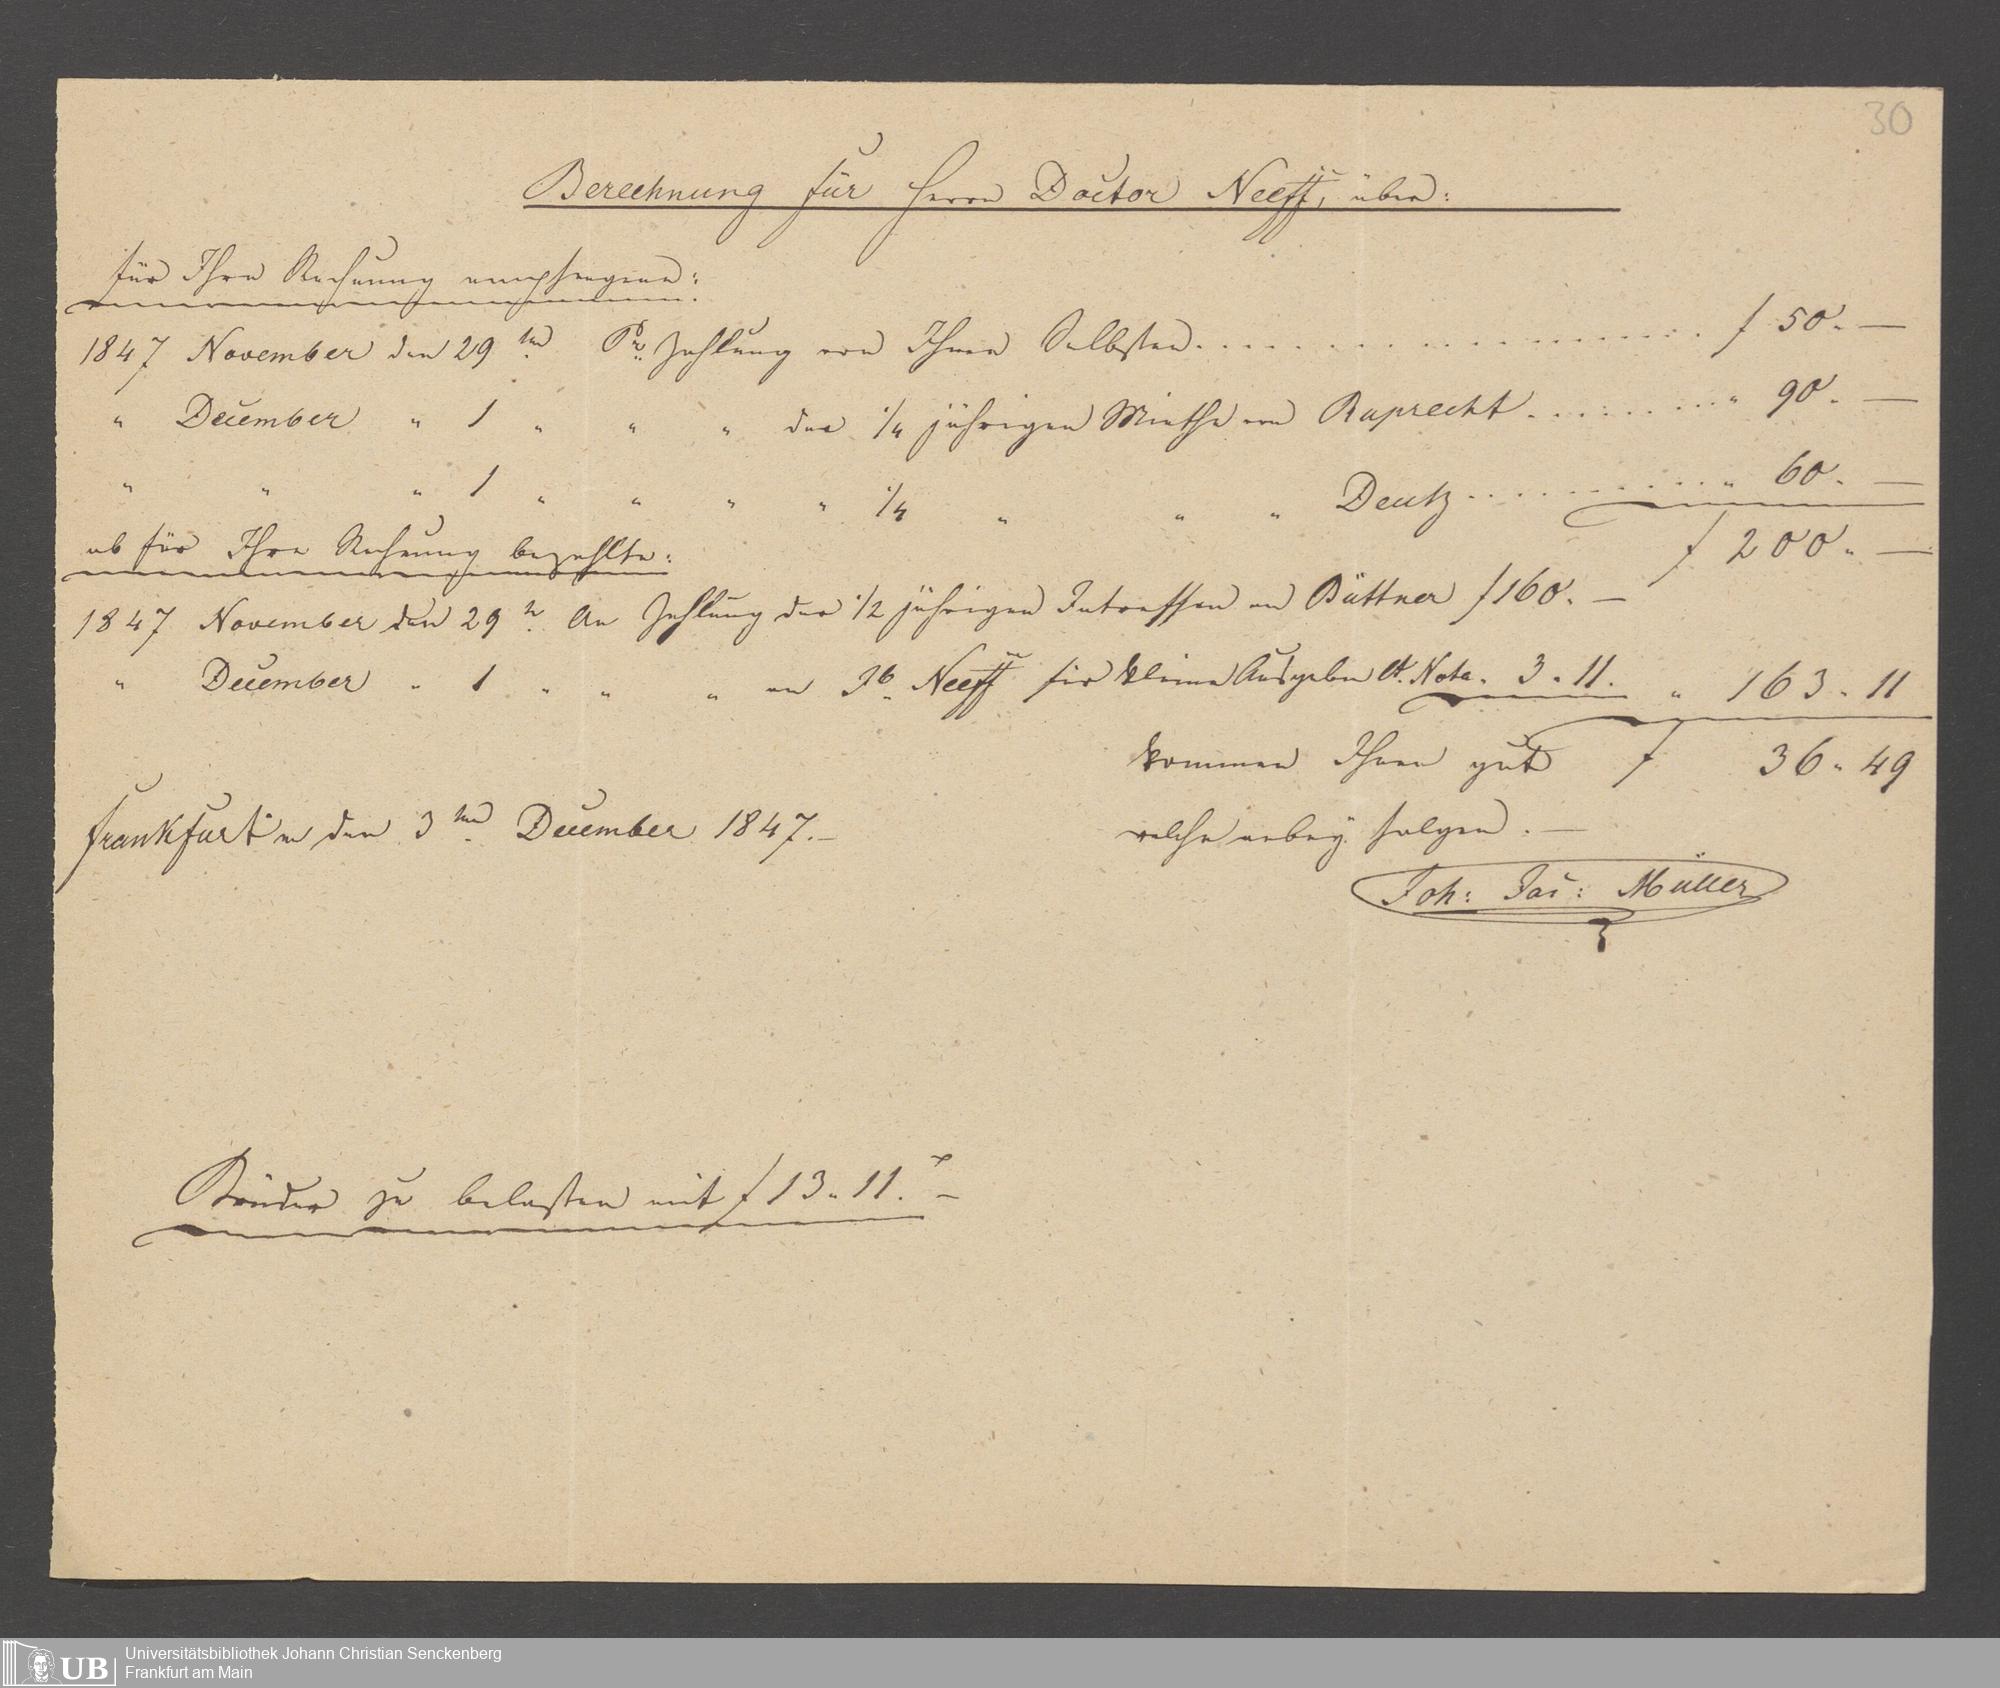 30
Berechnung für Herrn Doctor Neeff, über:
für Ihre Rechnung empfangene:
1847 November den 29ten Pr. Zahlung von Ihnen Selbsten . . . . . . . . . . . . f 50. —
" December " 1 " " " der 1/4 jährigen Miethe von Ruprecht . . . . . . . " 90. —
" " " 1 " " " " 1/4 " " " Deutz . . . . . . . . . " 60. —
f 200. —
ab für Ihre Rechnung bezahlte:
1847 November den 29n An Zahlung der 1/2 jährigen Intressen an Büttner f 160. —
" December " 1 " " " an Jb. Neeff für kleine Ausgaben lt. Nota " 3 " 11. " 163 " 11
kommen Ihnen gut f 36 " 49
Frankfurt a/m den 3ten December 1847. —
welche anbey folgen. —
Joh: Jac: Müller
Brüder zu belasten mit f 13 " 11. x —
UB
Universitätsbibliothek Johann Christian Senckenberg
Frankfurt am Main